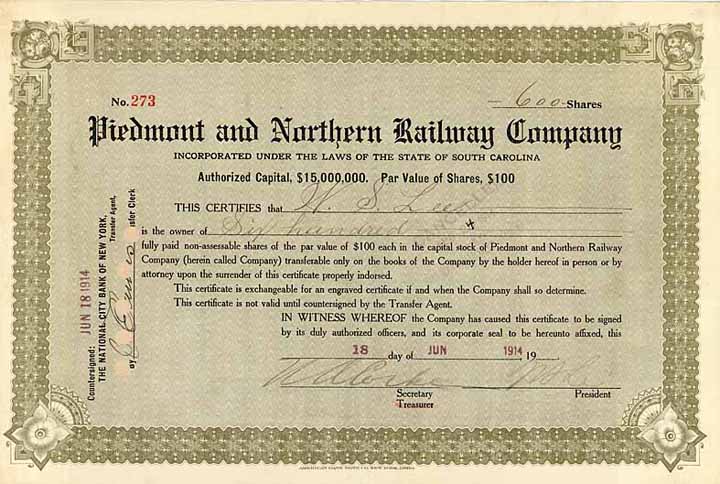 No. 273
600 Shares
Piedmont and Northern Railway Company
INCORPORATED UNDER THE LAWS OF THE STATE OF SOUTH CAROLINA
Authorized Capital, $15,000,000. Par Value of Shares, $100
THIS CERTIFIES that W. S. Lee
is the owner of Six hundred
fully paid non-assessable shares of the par value of $100 each in the capital stock of Piedmont and Northern Railway
Company (herein called Company) transferable only on the books of the Company by the holder hereof in person or by
attorney upon the surrender of this certificate properly indorsed.
This certificate is exchangeable for an engraved certificate if and when the Company shall so determine.
This certificate is not valid until countersigned by the Transfer Agent.
IN WITNESS WHEREOF the Company has caused this certificate to be signed
by its duly authorized officers, and its corporate seal to be hereunto affixed, this
18 day of JUN 1914 19
Secretary President
Treasurer
Countersigned: JUN 18 1914
THE NATIONAL CITY BANK OF NEW YORK,
Transfer Agent,
By
nsfer Clerk